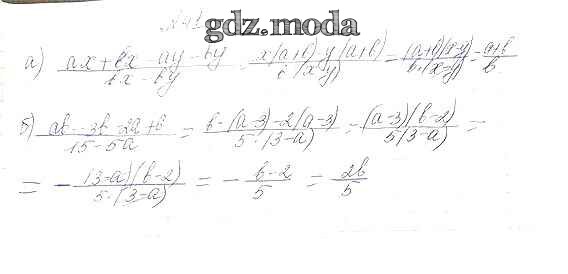 gdz.moda
а) (ax + bx - ay - by)/(bx - by) = (x(a+b) - y(a+b))/(b(x-y)) = ((a+b)(x-y))/(b(x-y)) = (a+b)/b
б) (ab - 3b - 2a + 6)/(15 - 5a) = (b·(a-3) - 2(a-3))/(5·(3-a)) = ((a-3)(b-2))/(5(3-a)) =
= - ((3-a)(b-2))/(5·(3-a)) = - (b-2)/5 = (2b)/5